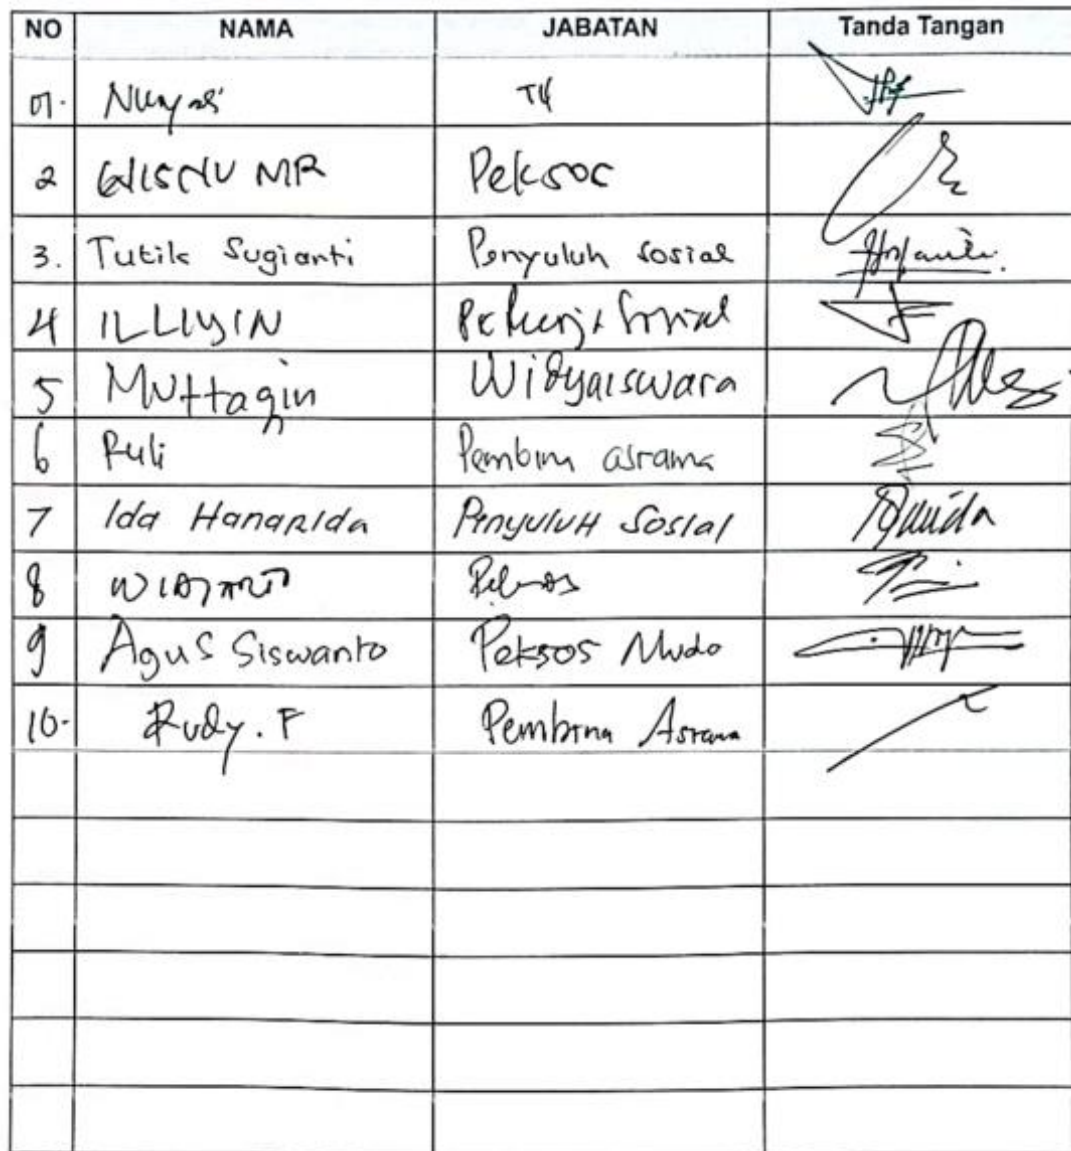 NO NAMA JABATAN Tanda Tangan
01. TU
2 WISNU MR Peksos
3. Tutik Sugianti Penyuluh Sosial
4 ILLIYIN Pekerja Sosial
5 Muttaqin Widyaiswara
6 Ruli Pembina asrama
7 Ida HanaRIda PenyuluH Sosial
8
9 Agus Siswanto Peksos Muda
10. Rudy. F Pembina Asrama